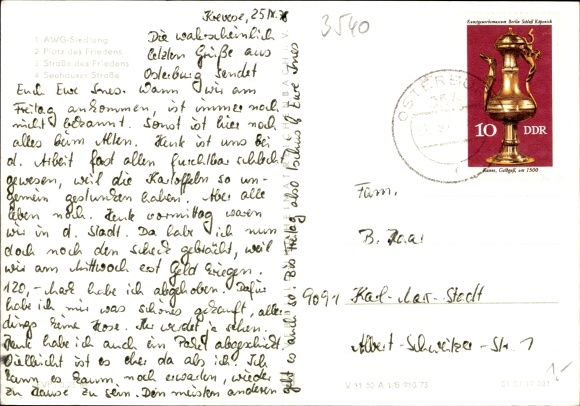 Krevese, 25.IX.76
3540
1 AWG-Siedlung
2 Platz des Friedens
3 Straße des Friedens
4 Seehäuser Straße
Die wahrscheinlich
letzten Grüße aus
Osterburg sendet
Euch Eure Ines. Wann wir am
Freitag ankommen, ist immer noch
nicht bekannt. Sonst ist hier noch
alles beim Alten. Heute ist uns bei
d. Arbeit fast allen furchtbar schlecht
gewesen, weil die Kartoffeln so un-
gemein gestunken haben. Aber alle
leben noch. Heute vormittag waren
wir in d. Stadt. Da habe ich nun
doch noch den Scheck gebraucht, weil
wir am Mittwoch erst Geld kriegen.
120,- Mark habe ich abgehoben. Dafür
habe ich mir was schönes gekauft, aller
dings keine Hose. Ihr werdet ja sehen.
Heute habe ich auch ein Paket abgeschickt.
Vielleicht ist es eher da als ich. Ich
kann es kaum noch erwarten, wieder
zu Hause zu sein. Den meisten anderen
geht es auch so. Bis Freitag also Eure Ines
Kunstgewerbemuseum Berlin Schloß Köpenick
10 DDR
Kanne, Gelbguß, um 1500
OSTERBURG
Fam.
B.
9091 Karl-Marx-Stadt
Albert-Schweitzer-Str. 1
1,-